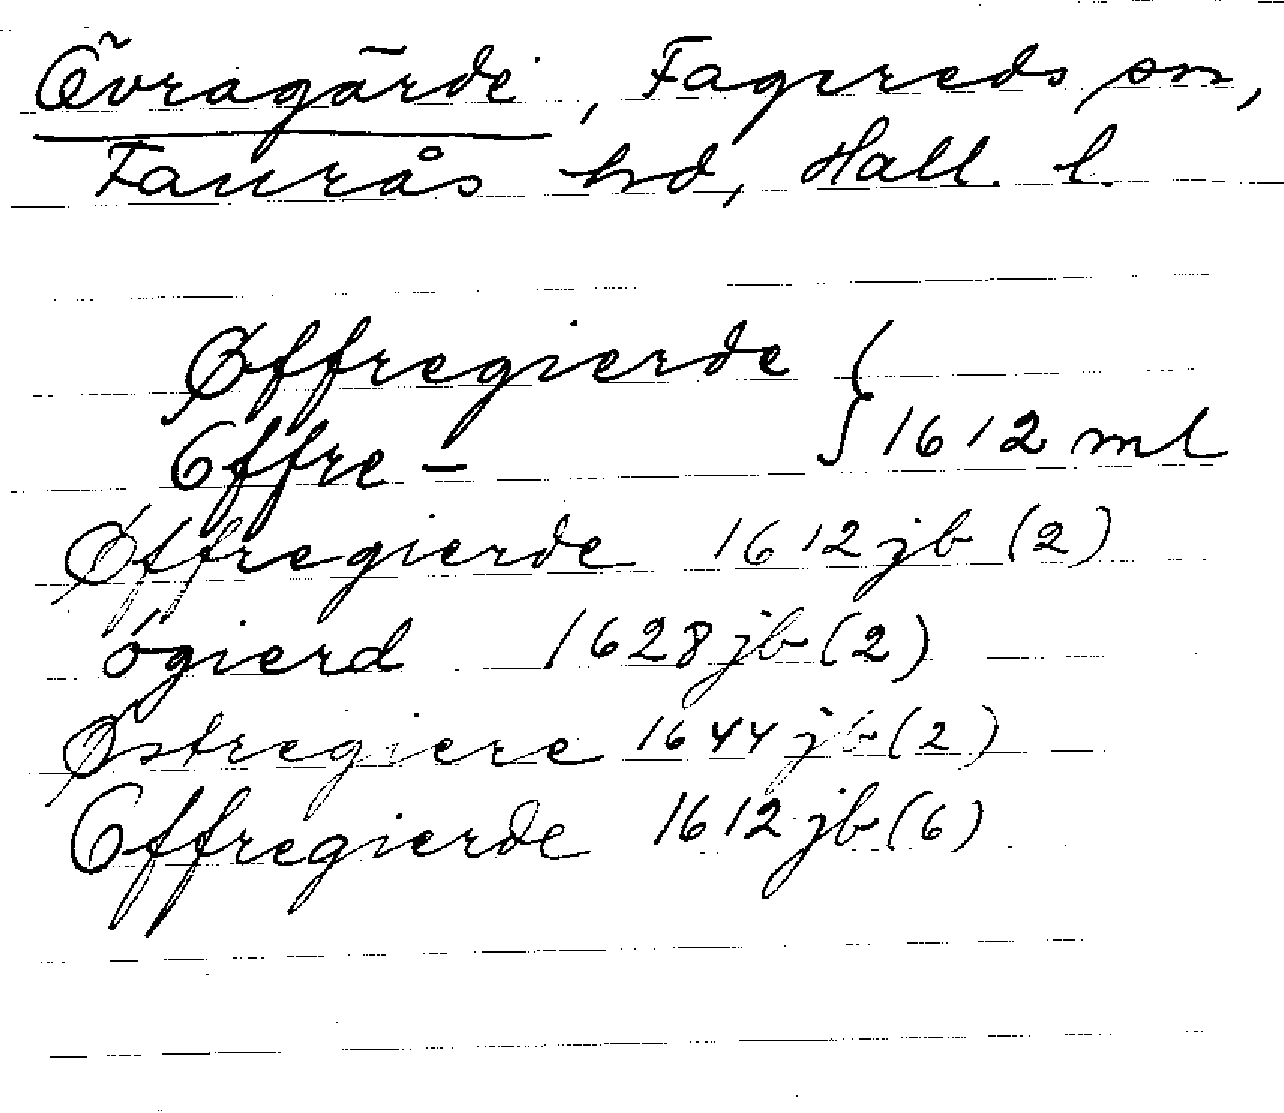 Övragärde, Fagereds sn,
Faurås hd, Hall. l.
Øffregierde
Offre – } 1612 ml
Øffregierde 1612 jb (2)
Øgierd 1628 jb (2)
Østregiere 1644 jb (2)
Offregierde 1612 jb (6)